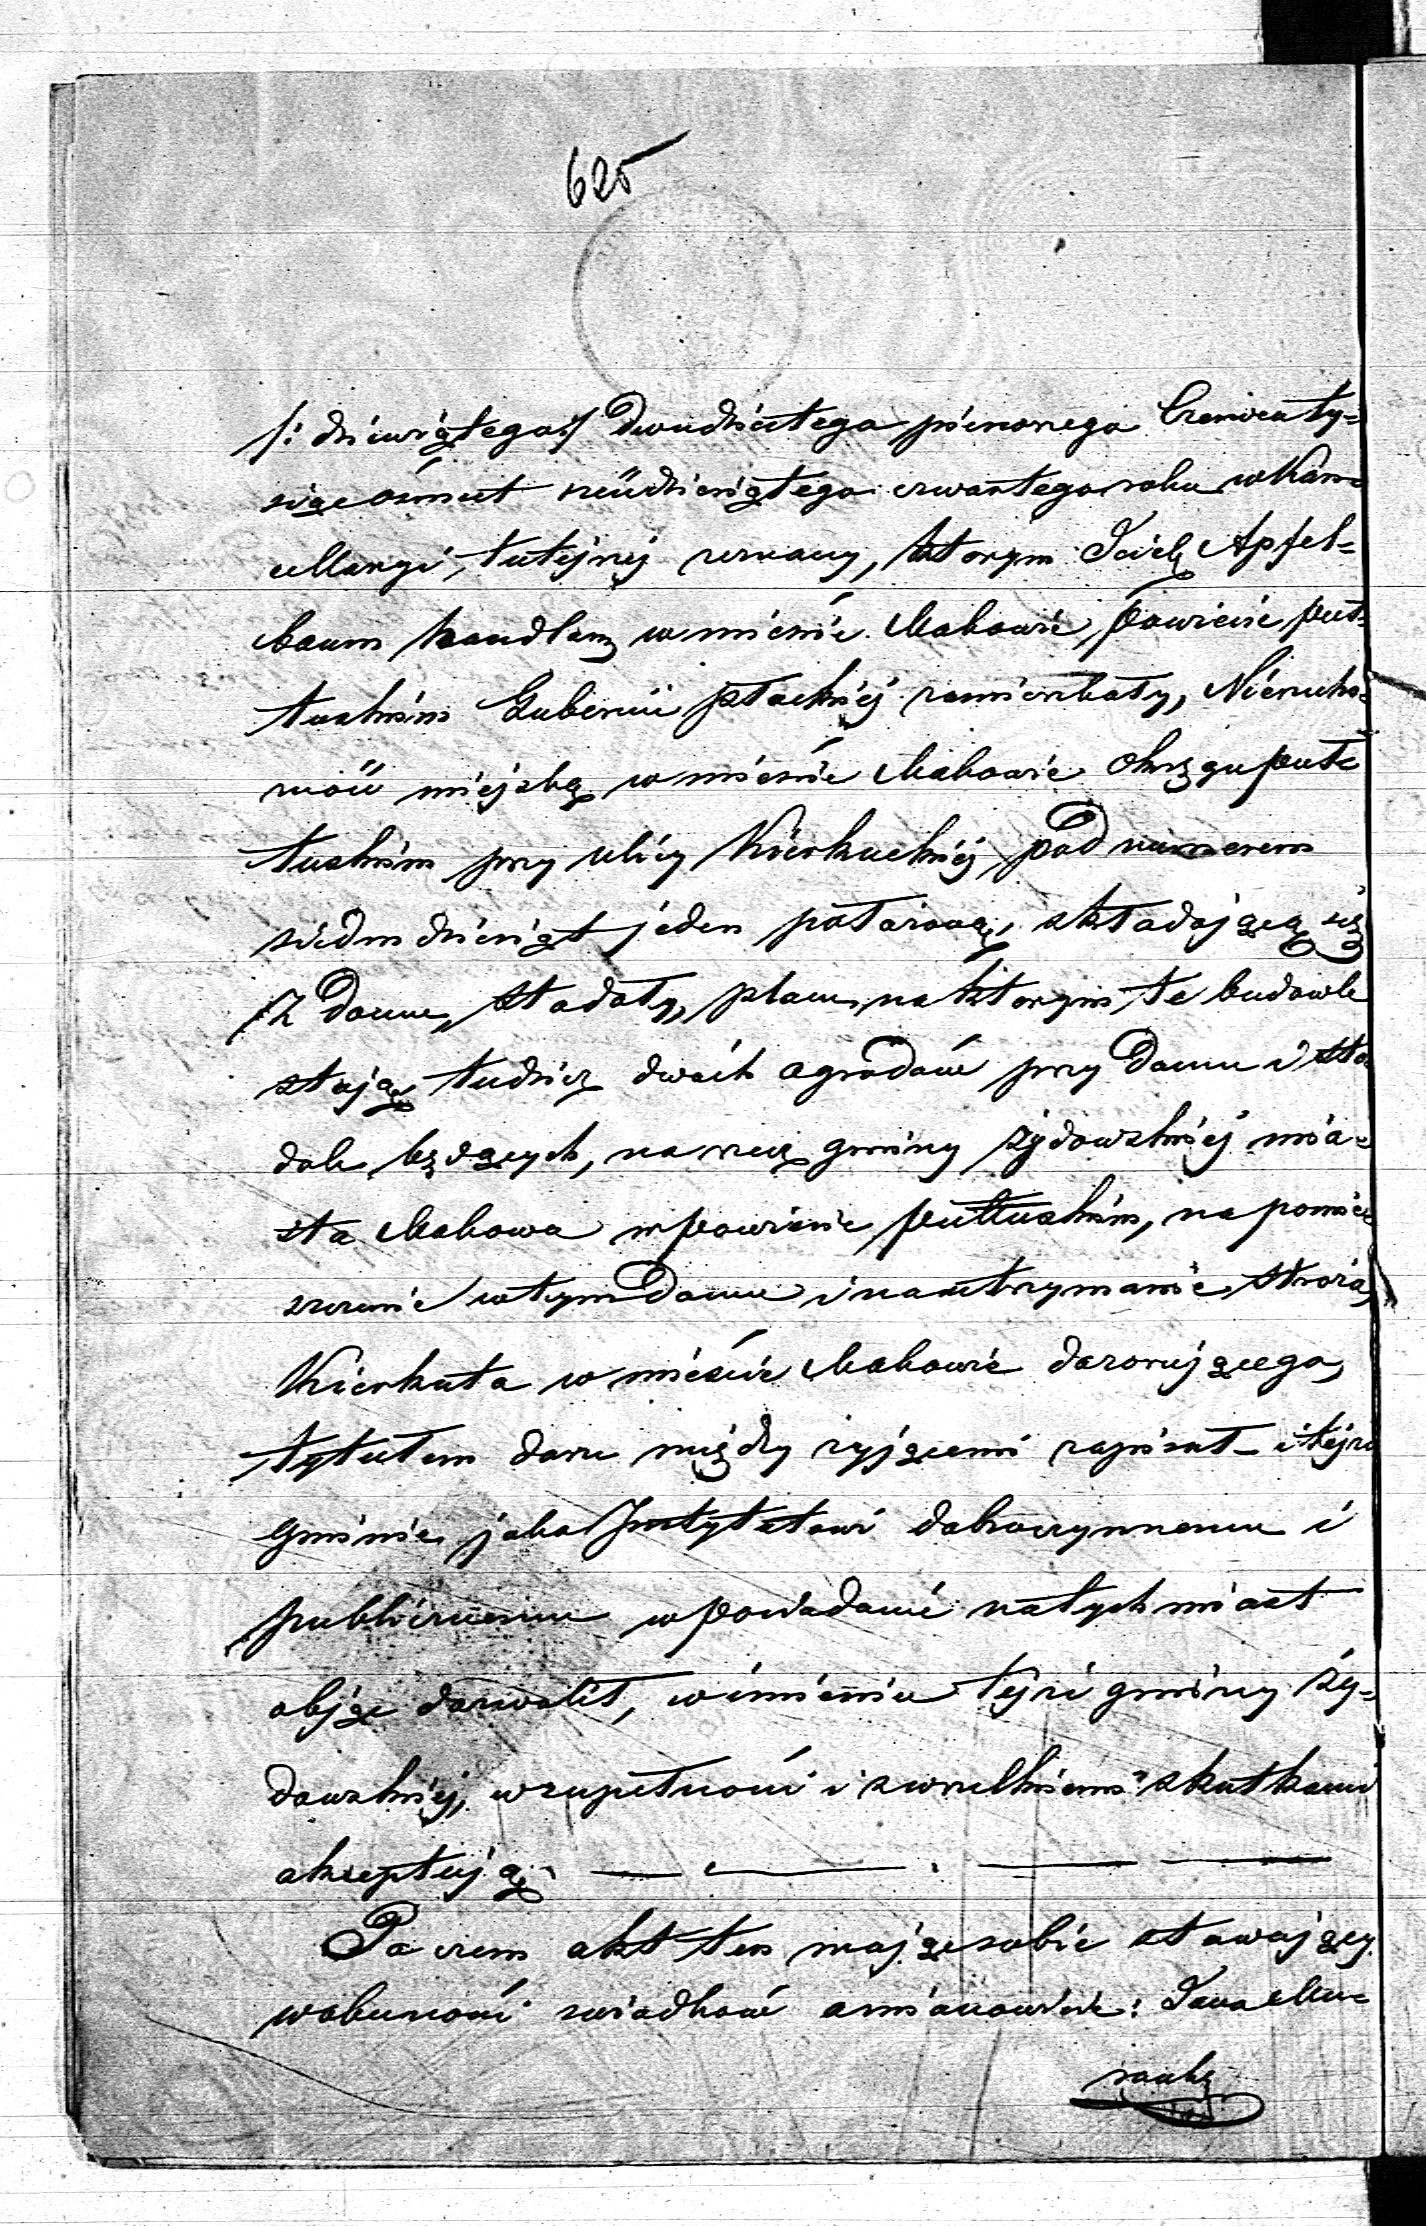 625
/: dziewiątego :/ Dwudziestego pierwszego Czerwca ty-
siąc ośmset sześćdziesiątego czwartego roku w Kan-
cellaryi tutejszej zeznany, którym Jośek Apfel-
baum handlarz w mieście Makowie, Powiecie Puł-
tuskim Gubernii płockiej zamieszkały, Nierucho-
mość miejską w mieście Makowie Okręgu puł-
tuskim przy ulicy Kierkuckiej pod numerem
siedmdziesiąt jeden położoną, składającą się
z Domu, stodoły, placu na którym te budowle
stoją, tudzież dwóch ogrodów przy Domu i sto-
dole będących, na rzecz gminy żydowskiej mia-
sta Makowa w Powiecie Pułtuskim, na pomie-
szczenie w tym Domu i na utrzymanie stróża,
Kierkuta w mieście Makowie dozorującego,
tytułem daru między żyjącemi zapisał i tejże
Gminie jako Instytutowi dobroczynnemu i
publicznemu w posiadanie natychmiast
objąć dozwolił, w imieniu tejże gminy ży-
dowskiej, w zupełności i z wszelkiemi skutkami
akceptują.
Po czem akt ten mając sobie stawający
w obecności świadków a mianowicie: Jana Mu-
rawkę